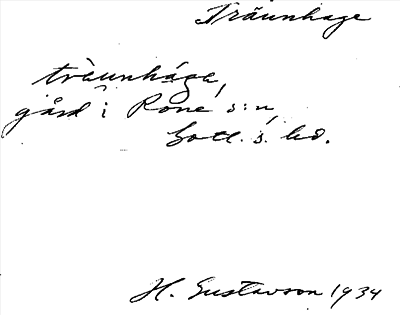 Träunhage
tràunhága,
gård i Rone s:n,
Gotl. s. hd.
H. Gustavson 1934